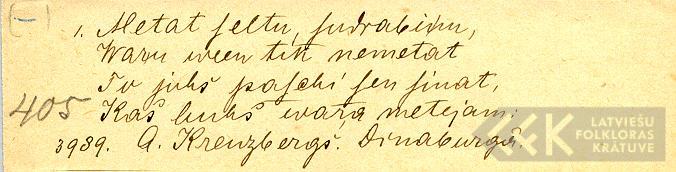 (-)
1. Metat seltu, sudrabiņu,
Waru ween tik nemetat
To juhs paschi sen sinat,
405
Kas buhs wara metejam:
3989. A. Kreuzbergs. Dinaburgā.
LATVIEŠU
FOLKLORAS
KRĀTUVE